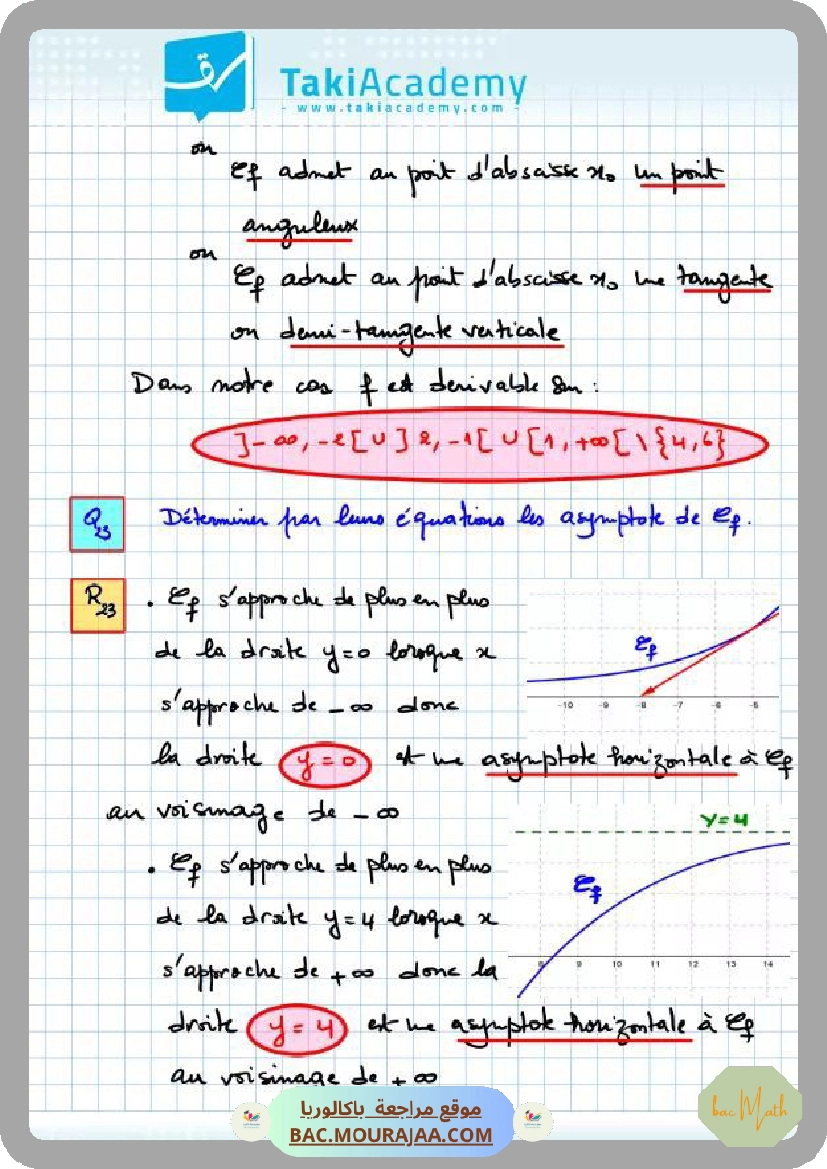 TakiAcademy
- www.takiacademy.com -
ou
𝒞f admet au point d'abscisse x₀ un point
anguleux
ou
𝒞f admet au point d'abscisse x₀ une tangente
ou demi-tangente verticale
Dans notre cas f est derivable sur :
]-∞, -2[ ∪ ] 2, -1[ ∪ [1, +∞[ \ {4, 6}
Q23 Déterminer par leurs équations les asymptote de 𝒞f.
R23 • 𝒞f s'approche de plus en plus
de la droite y=0 lorsque x
s'approche de -∞ donc
𝒞f
-10 -9 -8 -7 -6 -5
la droite y = 0 est une asymptote horizontale à 𝒞f
au voisinage de -∞
y=4
• 𝒞f s'approche de plus en plus
𝒞f
de la droite y=4 lorsque x
s'approche de +∞ donc la
8 9 10 11 12 13 14
droite y = 4 est une asymptote horizontale à 𝒞f
au voisinage de +∞
موقع مراجعة باكالوريا
BAC.MOURAJAA.COM
bac Math